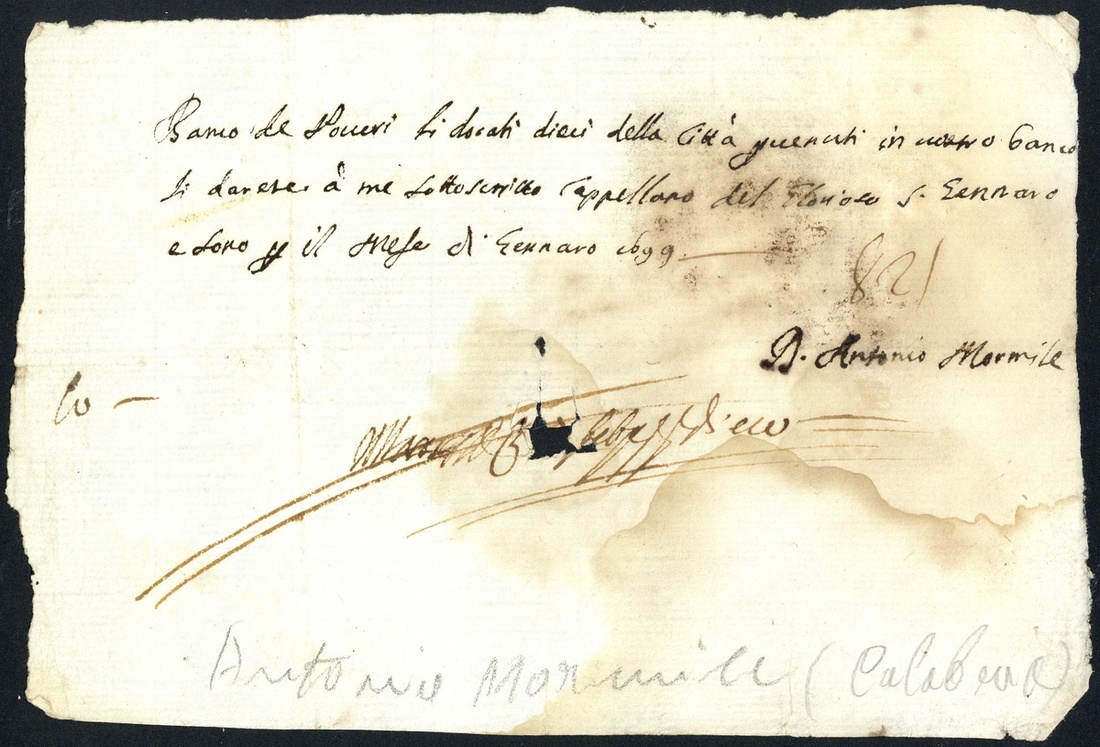 Banco de Poveri li docati dieci della Città pervenuti in vostro banco
li darete à me sottoscritto Cappellano del Glorioso S. Gennaro
e sono per il Mese di Gennaro 1699.
821
D. Antonio Mormile
Antonio Mormile (Calabria)